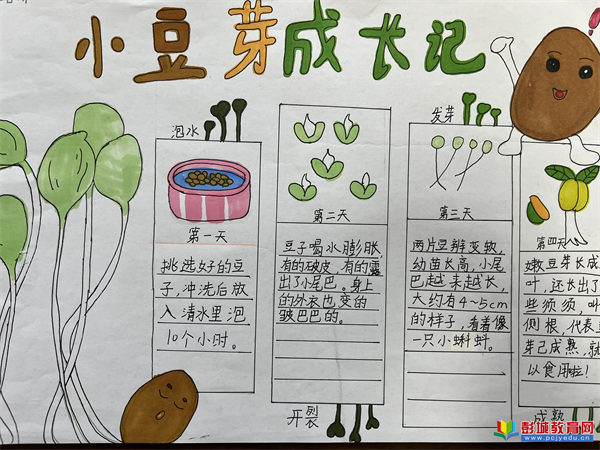 小豆芽成长记
泡水
第一天
挑选好的豆
子，冲洗后放
入清水里泡
10个小时。
第二天
豆子喝水膨胀，
有的破皮，有的露
出了小尾巴。身上
的外衣也变的
皱巴巴的。
开裂
发芽
第三天
两片豆瓣变软，
幼苗长高，小尾
巴越来越长，
大约有4~5cm
的样子，看着像
一只小蝌蚪。
第四天
嫩豆芽长成
叶，还长出了
些须须，叫
侧根，代表豆
芽已成熟，就
以食用啦！
成熟
彭城教育网
www.pcjyedu.cn